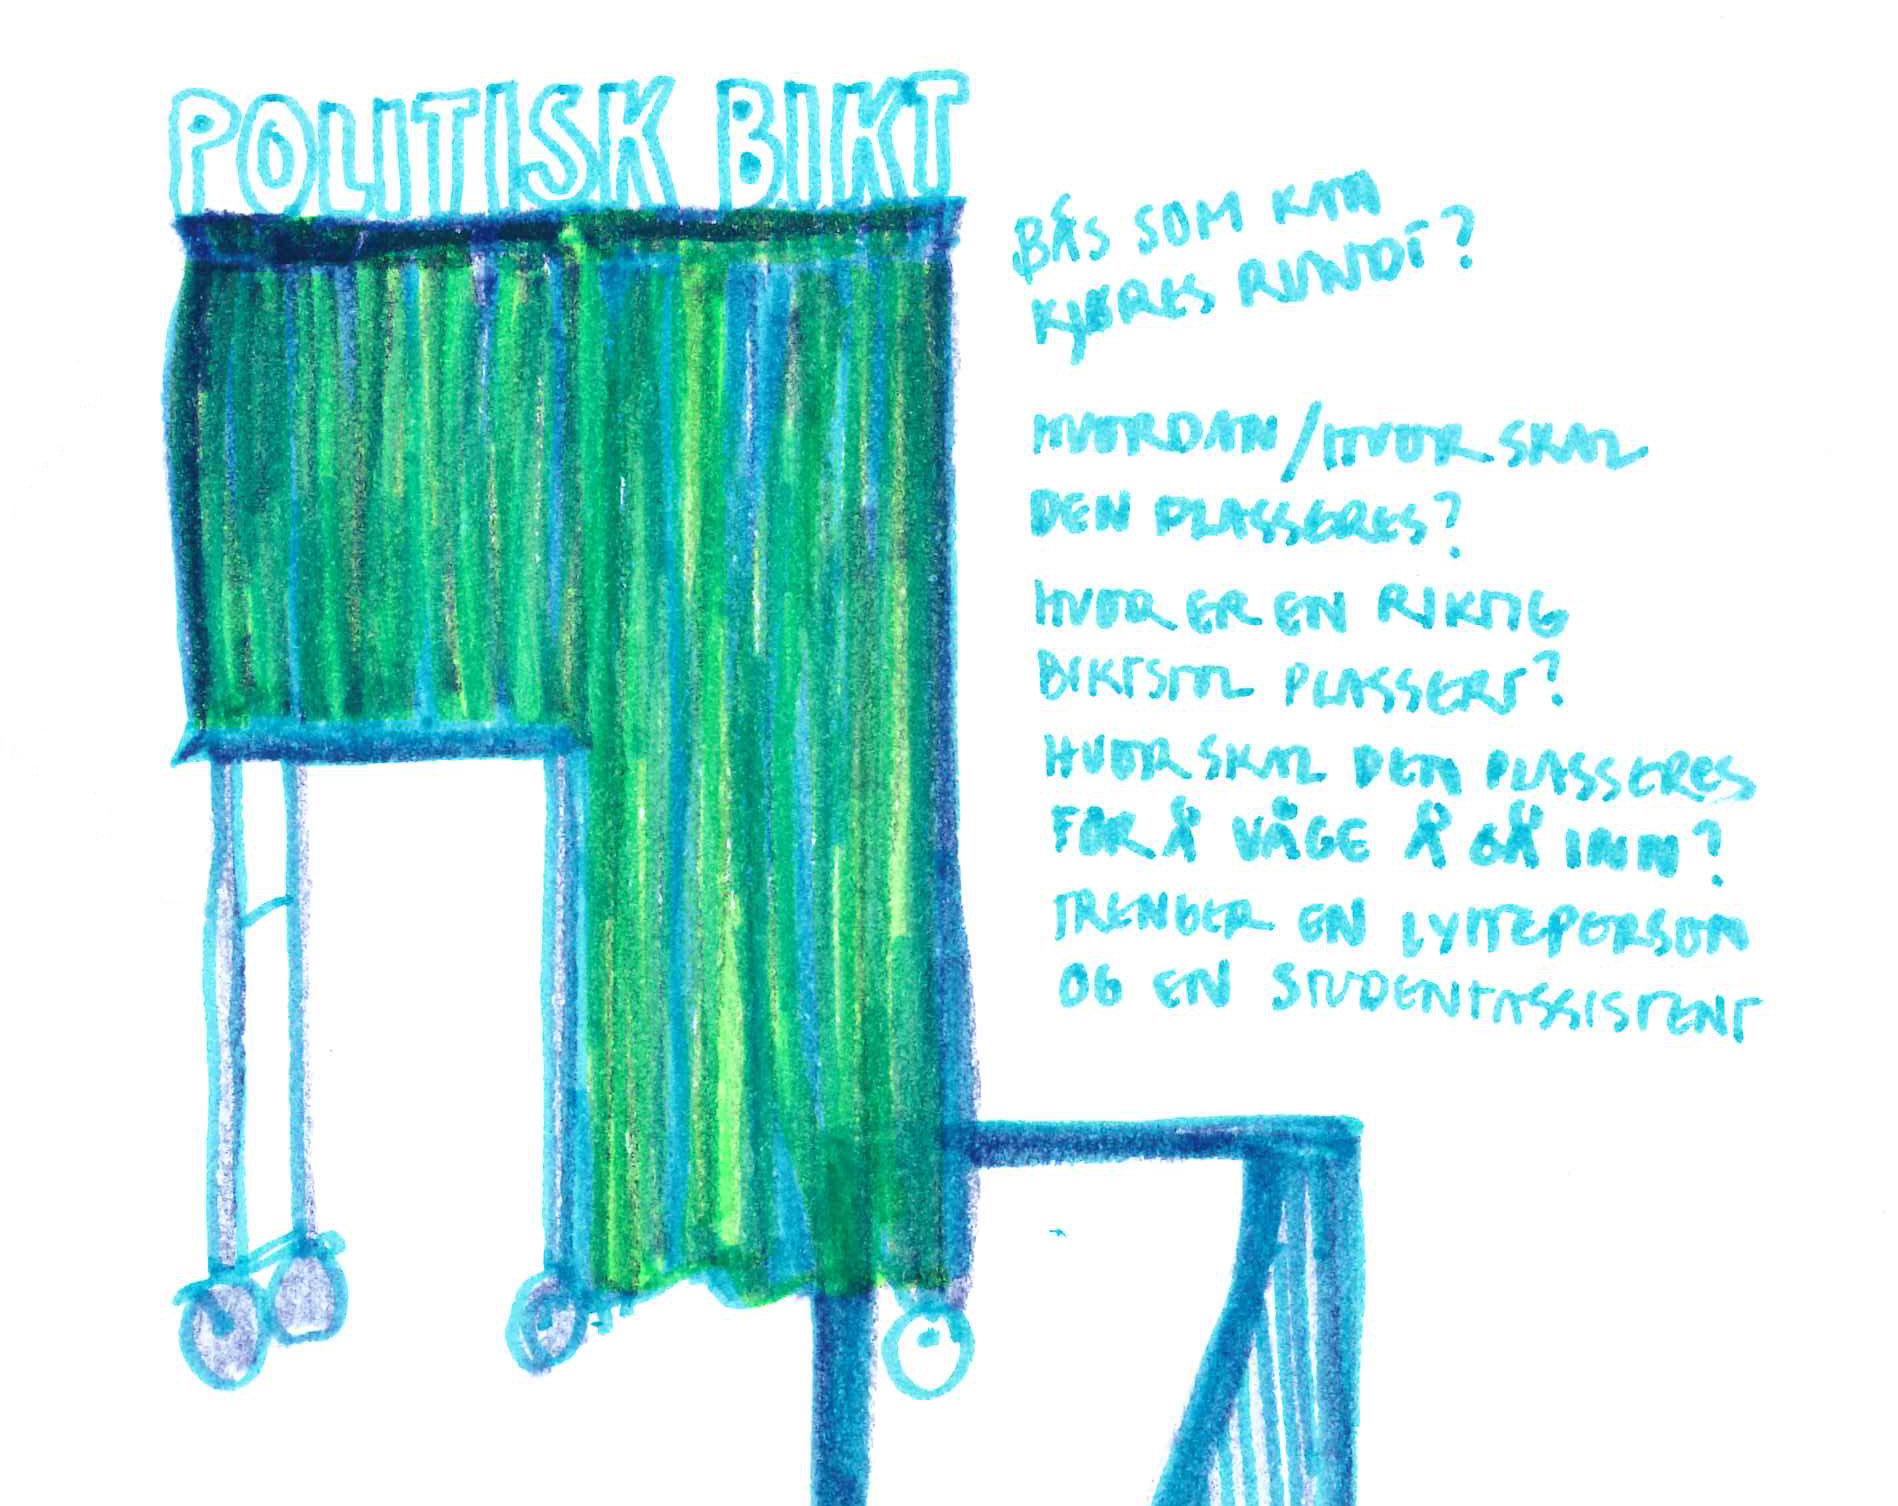 POLITISK BIKT
BÅS SOM KAN
KJØRES RUNDT?
HVORDAN/HVOR SKAL
DEN PLASSERES?
HVOR ER EN RIKTIG
BIKTSTOL PLASSERT?
HVOR SKAL DEN PLASSERES
FOR Å VÅGE Å GÅ INN?
TRENGER EN LYTTEPERSON
OG EN STUDENTASSISTENT